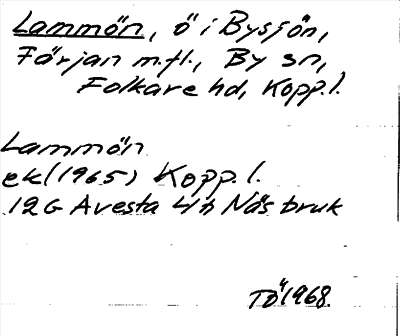 Lammön, ö i Bysjön,
Färjan m.fl., By sn,
Folkare hd, Kopp.l.
Lammön
ek(1965) Kopp.l.
12G Avesta 4h Näs bruk
TÖ 1968.